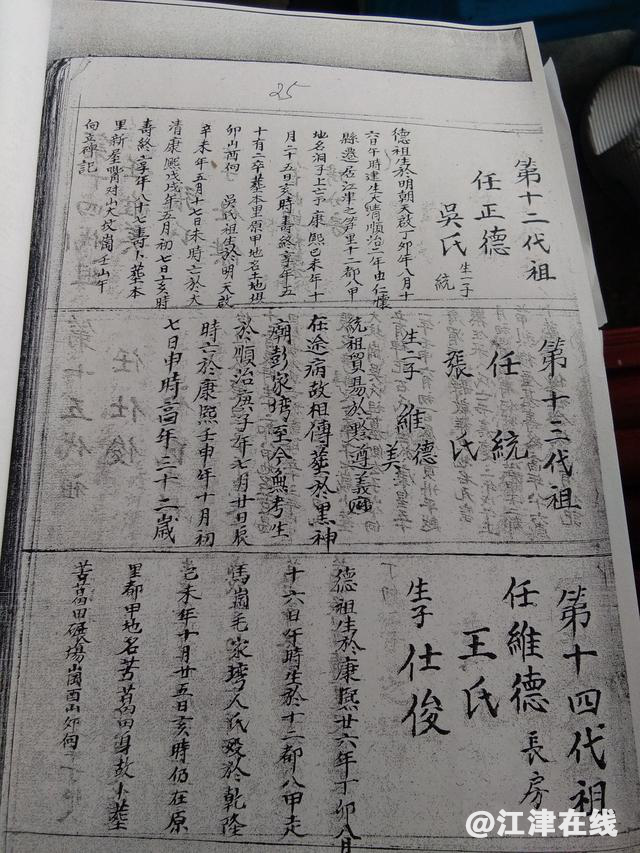 25
第十二代祖
任正德
吳氏 生一子 統
德祖生於明朝天啟丁卯年八月十
六日午時建生大清順治二年由仁懷
縣遷居江津之笋里十二都八甲
地名洞子上亡于康熙己未年十
月二十五日亥時壽終享年五
十有二卒墓本里原甲地名土地垻
卯山酉向 吳氏祖生於明天啟
辛未年五月十七日未時亡於大
清康熙戊戌年五月初七日亥時
壽終享年八十七壽卜墓本
里新屋嘴对山大坟崗壬山午
向立碑記
第十三代祖
任統
張氏
生二子 維德 美
統祖貿易於黔遵義
在途病故相傳墓於黑神
廟彭家塆至今無考生
於順治庚子年七月廿日辰
時亡於康熙壬申年十月初
七日申時享年三十二歲
第十四代祖
任維德 長房
王氏
生子 仕俊
德祖生於康熙廿六年丁卯八月
十六日午時生於十二都八甲走
馬崗毛家塆人氏歿於乾隆
己未年十月廿五日亥時仍在原
里都甲地名苦萵田身故卜墓
苦萵田碾塲崗酉山卯向
第十五代祖
任仕俊
@江津在线